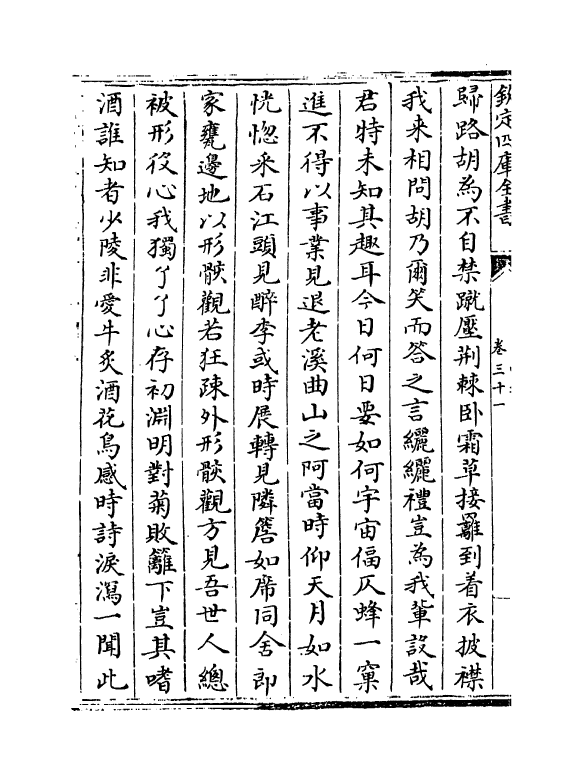 欽定四庫全書
卷三十一
歸路胡為不自禁蹴壓荆棘卧霜草接䍦到着衣披襟
我来相問胡乃爾笑而答之言纚纚禮豈為我軰設哉
君特未知其趣耳今日何日要如何宇宙偪仄蜂一窠
進不得以事業見退老溪曲山之阿當時仰天月如水
恍惚采石江頭見醉李或時展轉見隣簷如席同舍郎
家甕邊地以形骸觀若狂疎外形骸觀方見吾世人總
被形役心我獨了了心存初淵明對菊敗籬下豈其嗜
酒誰知者少陵非愛牛炙酒花鳥感時詩淚瀉一聞此